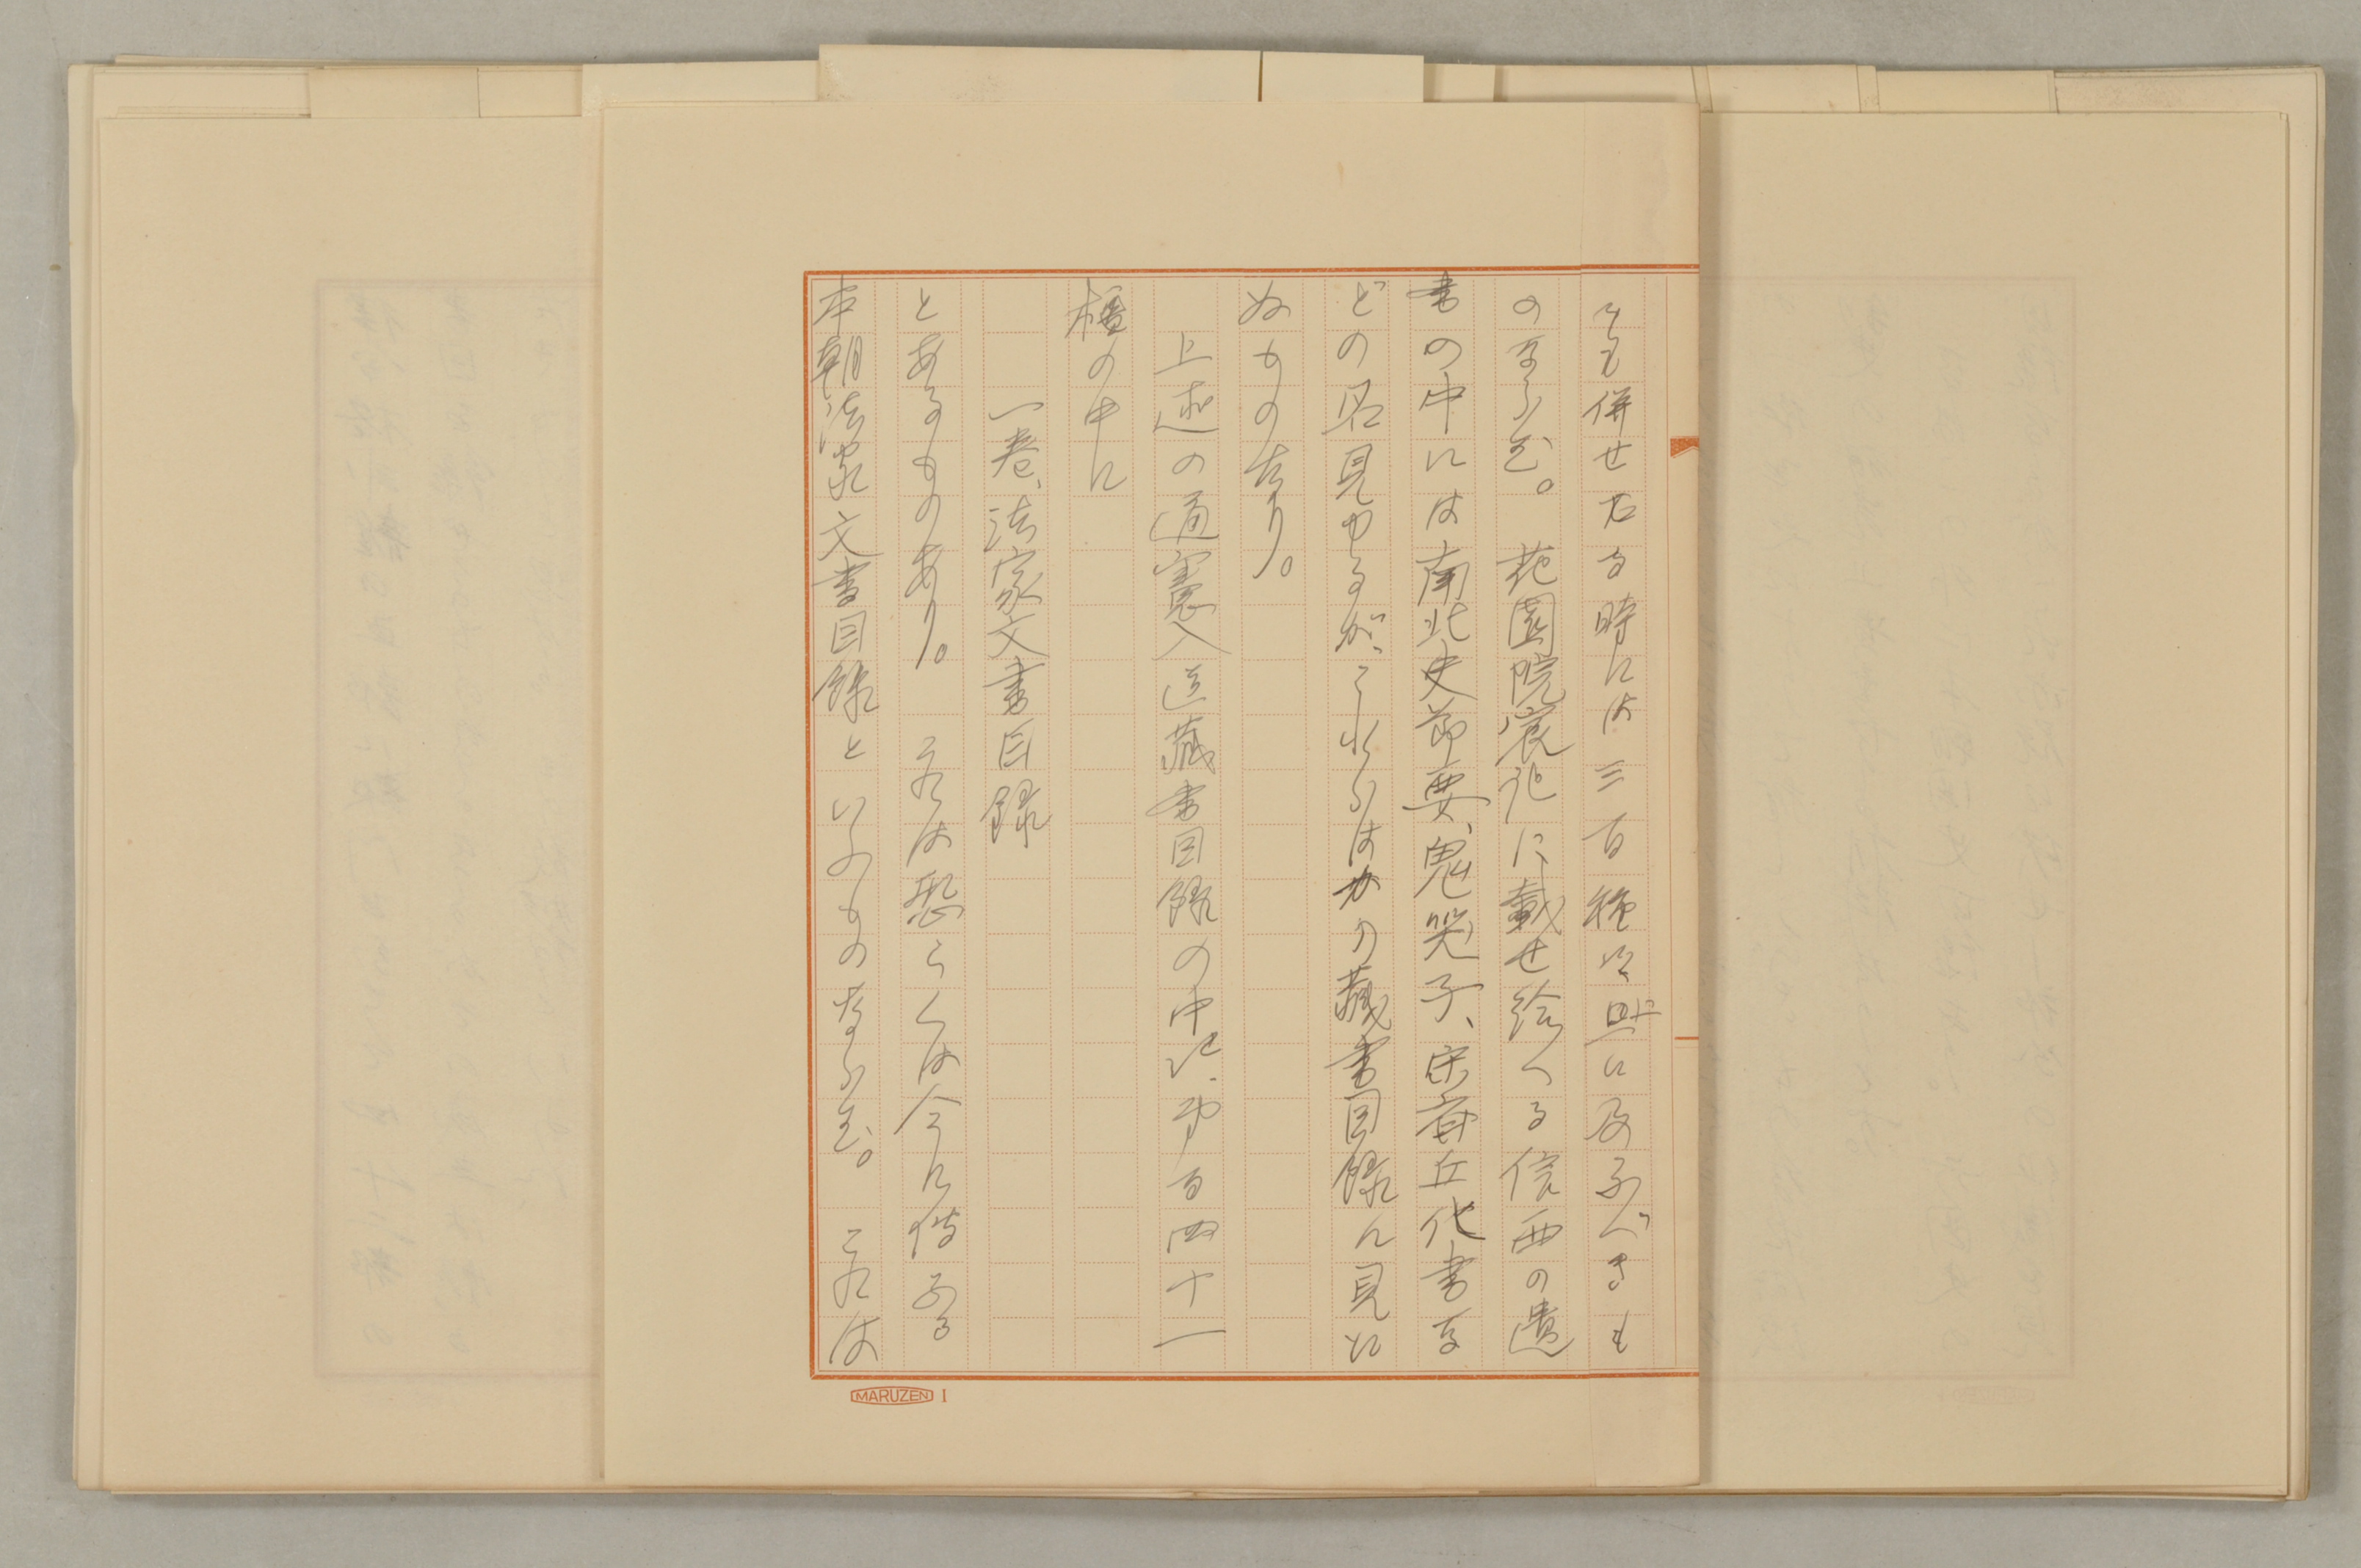 をも併せたる時には三百種以上に及ぶべきも
のならむ。花園院宸記に載せ給へる信西の遺
書の中には南北史節要、鬼哭子、宋齊丘化書な
どの名見ゆるが、これらはかの藏書目録に見え
ぬものなり。
上述の通憲入道藏書目録の中に、第百四十一
櫃の中に
一巻、法家文書目録
とあるものあり。これは恐らくは今に傳ふる
本朝法家文書目録といふものならむ。これは
MARUZEN 1